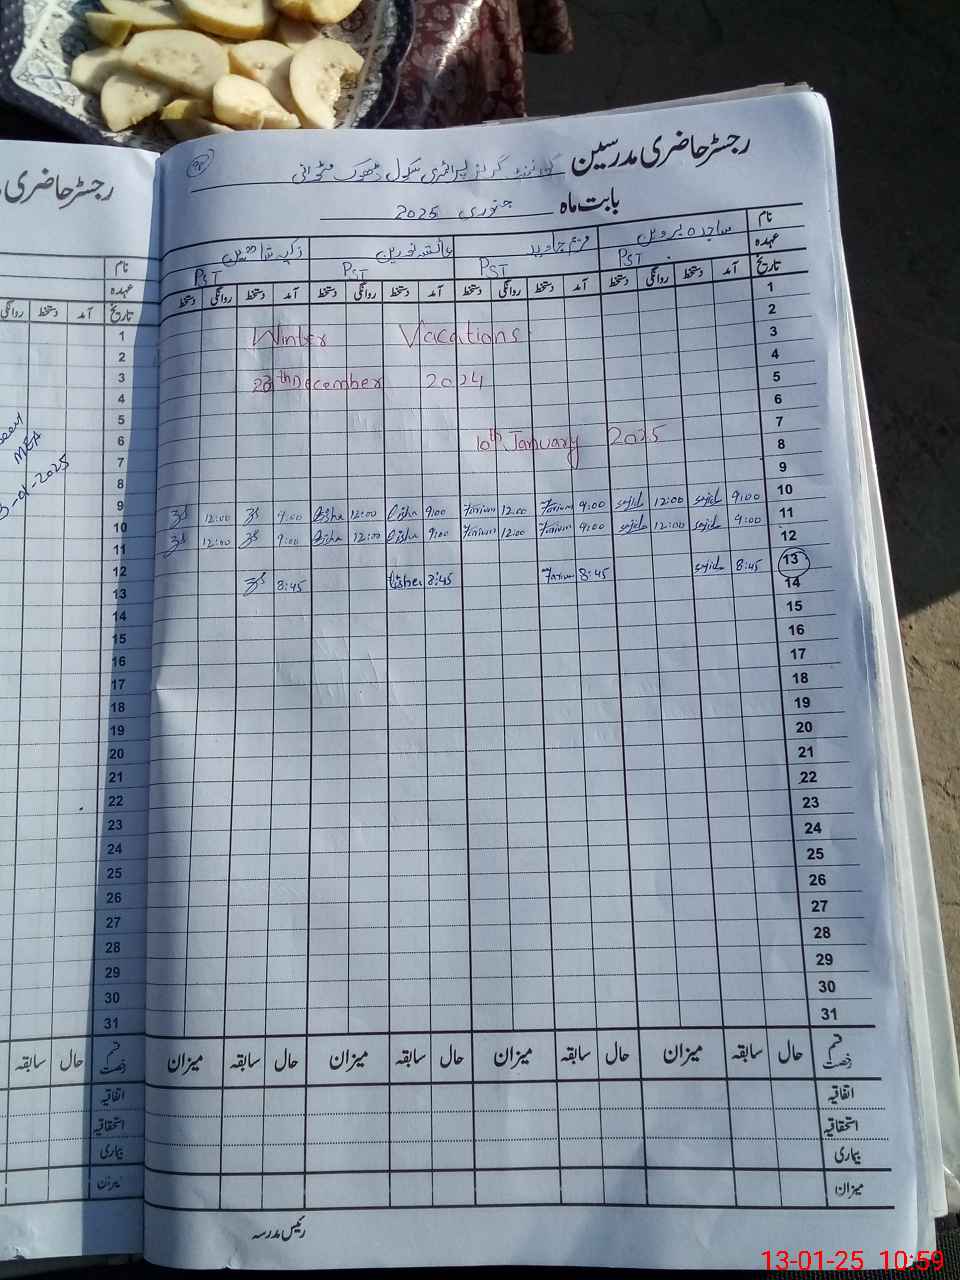 رجسٹر حاضری مدرسین گورنمنٹ گرلز پرائمری سکول ڈھوک
بابت ماہ جنوری 2025
نام ساجدہ پروین مریم جاوید عائشہ نورین ذکیہ شاھین
عہدہ PST PST PST PST
تاریخ آمد دستخط روانگی دستخط آمد دستخط روانگی دستخط آمد دستخط روانگی دستخط آمد دستخط روانگی دستخط
1
2
Winter Vacations
3
4
23th December 2024
5
6
7
10th January 2025
8
9
10
9:00 sajid 12:00 sajid 9:00 12:00 9:00 Aisha 12:00 Aisha 9:00 12:00
11
9:00 sajida 12:00 sajida 9:00 12:00 9:00 Aisha 12:00 Aisha 9:00 12:00
12
13 8:45 sajid 8:45 8:45 8:45
14
15
16
17
18
19
20
21
22
23
24
25
26
27
28
29
30
31
قسم رخصت حال سابقہ میزان حال سابقہ میزان حال سابقہ میزان حال سابقہ میزان
اتفاقیہ
استحقاقیہ
بیماری
میزان
رئیس مدرسہ
رجسٹر حاضری
نام
عہدہ
تاریخ آمد دستخط روانگی
1
2
3
4
5
6
MEA
7
-01-2025
8
9
10
11
12
13
14
15
16
17
18
19
20
21
22
23
24
25
26
27
28
29
30
31
قسم رخصت حال سابقہ
اتفاقیہ
استحقاقیہ
بیماری
میزان
13-01-25 10:59